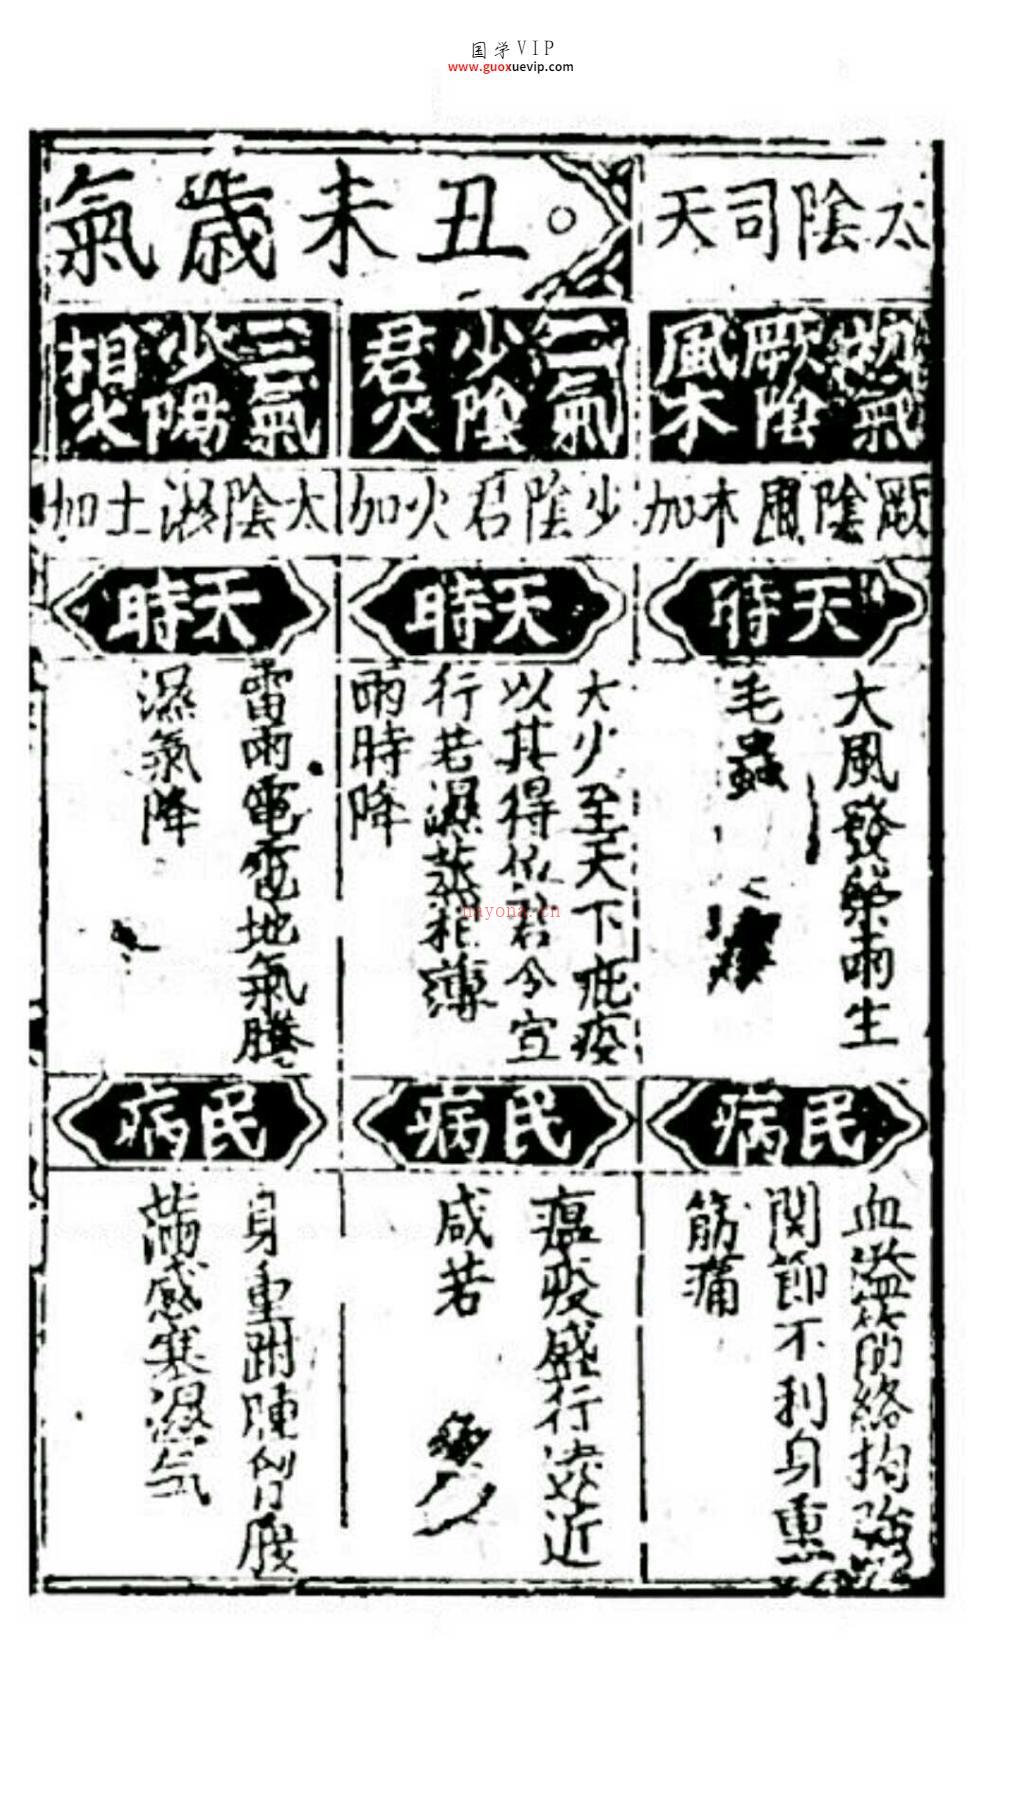 国学VIP
www.guoxuevip.com
太陰司天
丑未歲氣
初氣
厥陰
風木
二氣
少陰
君火
三氣
少陽
相火
厥陰風木加
少陰君火加
太陰濕土加
天時
天時
天時
大風發榮雨生
毛蟲
大火至天下疵疫
以其得位君令宣
行若濕蒸相薄
雨時降
雷雨電雹地氣騰
濕氣降
nayona.cn
民病
民病
民病
血溢筋絡拘強
関節不利身重
筋痛
瘟疫盛行遠近
咸若
身重跗腫胷腹
滿感寒濕气